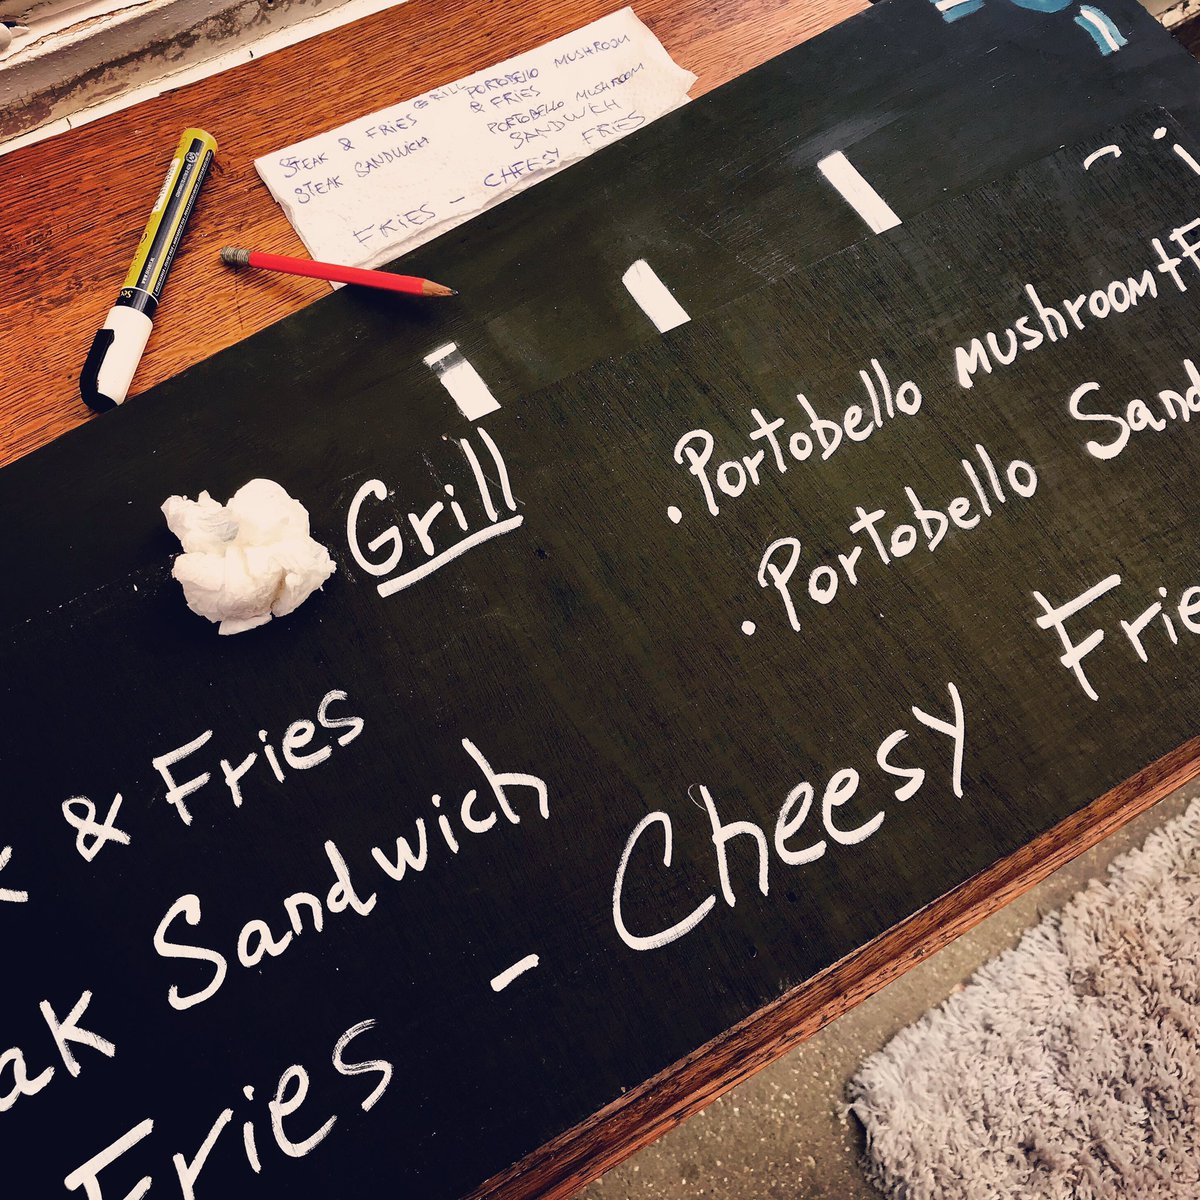 GRILL
STEAK & FRIES
STEAK SANDWICH
PORTOBELLO MUSHROOM
& FRIES
PORTOBELLO MUSHROOM
SANDWICH
FRIES - CHEESY FRIES
Grill
& Fries
ak Sandwich
. Portobello mushroom + F
. Portobello Sand
Fries - Cheesy Frie